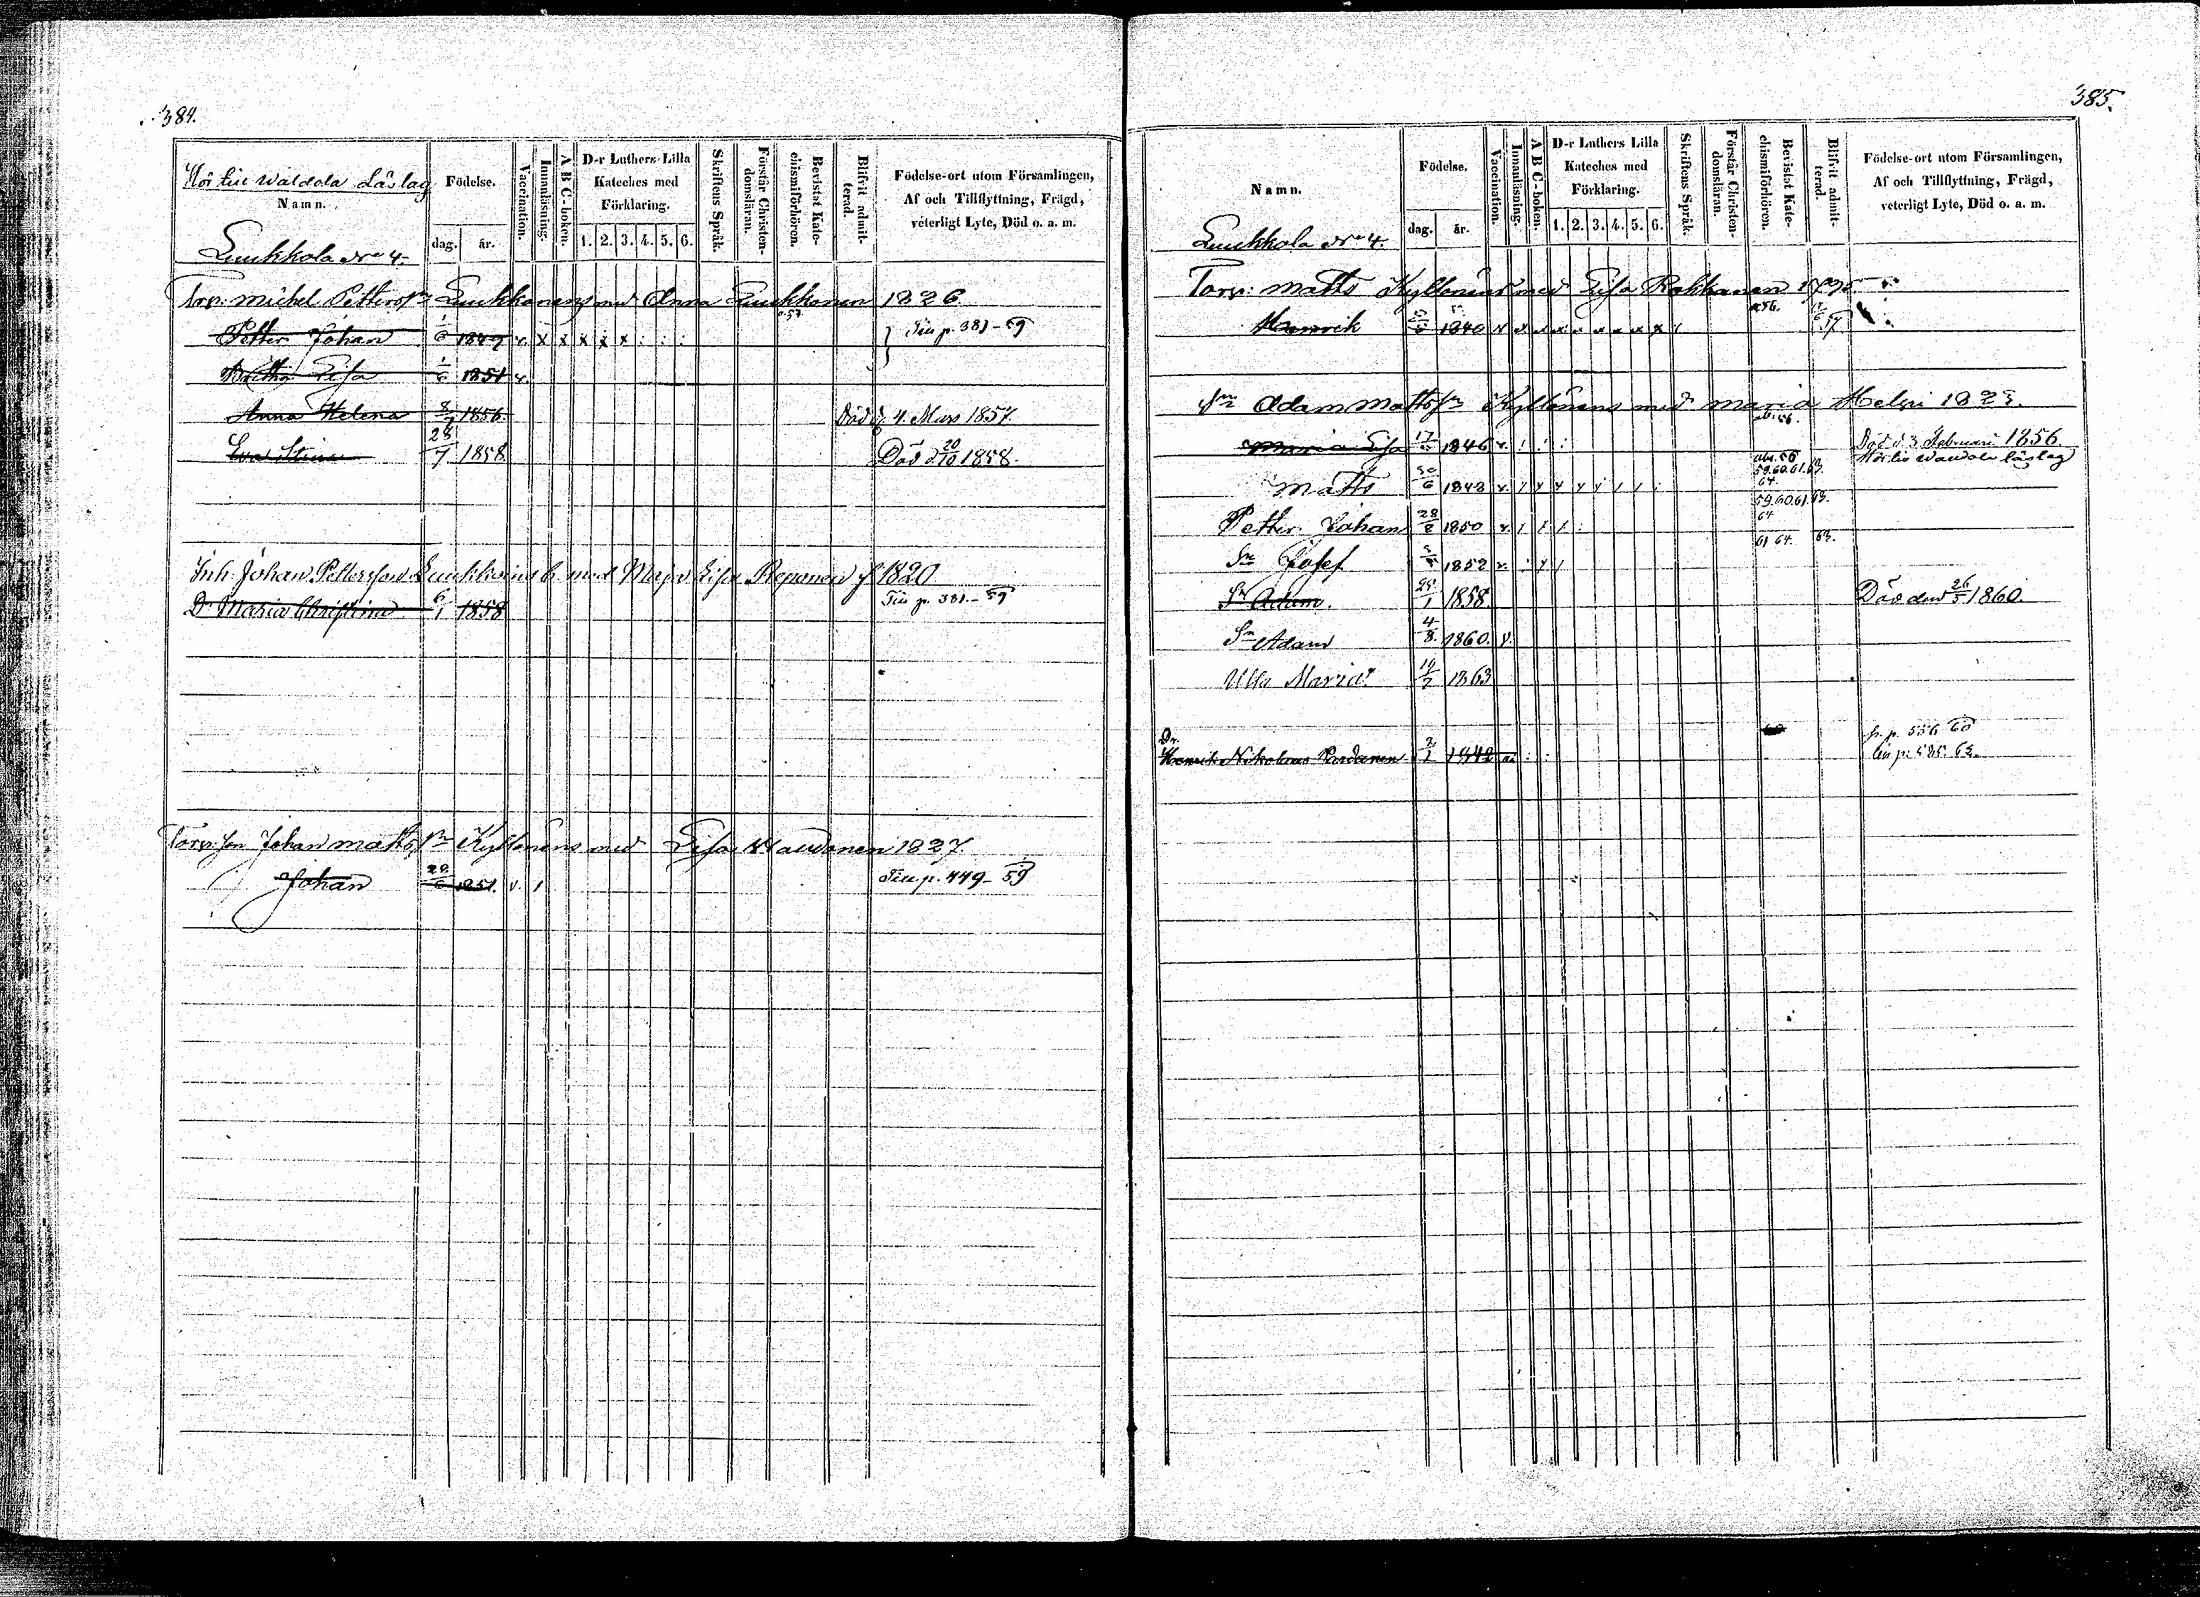 384.
Hör till Waldola Läslag
Namn.
Födelse.
dag.
år.
Vaccination.
Innanläsning.
A B C-boken.
D-r Luthers Lilla
Kateches med
Förklaring.
1. 2. 3. 4. 5. 6.
Skriftens Språk.
Förstår Christen-
domsläran.
Bevistat Kate-
chismiförhören.
Blifvit admit-
terad.
Födelse-ort utom Församlingen,
Af och Tillflyttning, Frägd,
veterligt Lyte, Död o. a. m.
Luukkola No 4.
Torp. Michel Petterss:n Luukkonens med Anna Luukkonen 1826
Petter Johan 1/6 1847 v. x x x x x : : : Till p. 381-59
Britha Lisa 1/6 1851 v.
Anna Helena 8/7 1856. Död d. 4. Mars 1857.
Eva Stina 28/7 1858 Död d 20/10 1858.
Inh. Johan Pettersson Luukkoins b. med Maja Lisa Reponen f 1820
Dr Maria Christina 6/1 1858 Till p. 381.-59
Torp: son Johan Matts:n Kyllönens med Lisa Waudonen 1827.
Johan 28/6 1851. v. / Till p. 449-59
385.
Namn.
Födelse.
dag.
år.
Vaccination.
Innanläsning.
A B C-boken.
D-r Luthers Lilla
Kateches med
Förklaring.
1. 2. 3. 4. 5. 6.
Skriftens Språk.
Förstår Christen-
domsläran.
Bevistat Kate-
chismiförhören.
Blifvit admit-
terad.
Födelse-ort utom Församlingen,
Af och Tillflyttning, Frägd,
veterligt Lyte, Död o. a. m.
Luukkola No 4.
Torp: Matts Kyllönens med Lisa Rokkanen 1795
Henrik 1840 v x x x x x x x x
Sn Adam Matts:n Kyllönens med Maria Helpi 1823.
Maria Lisa 17 1846 v. : : : Död d. 3 Februari 1856.
Hör till Waldola läslag
Matts 30/6 1848 v. 59.60.61.63. 64.
Petter Johan 28/8 1850 v. / / / : 59.60.61.63. 64
Sn Josef 1852 v. 61 64. 63.
Sn Adam. 25/1 1858. Död den 26/5 1860.
Sn Adam 4/8 1860. v.
Ulla Maria 19/7 1863
Dr.
Henrik Nikolaus Pardanen 2/1 1842 60 fr. p. 556 60
till p. 585. 63.